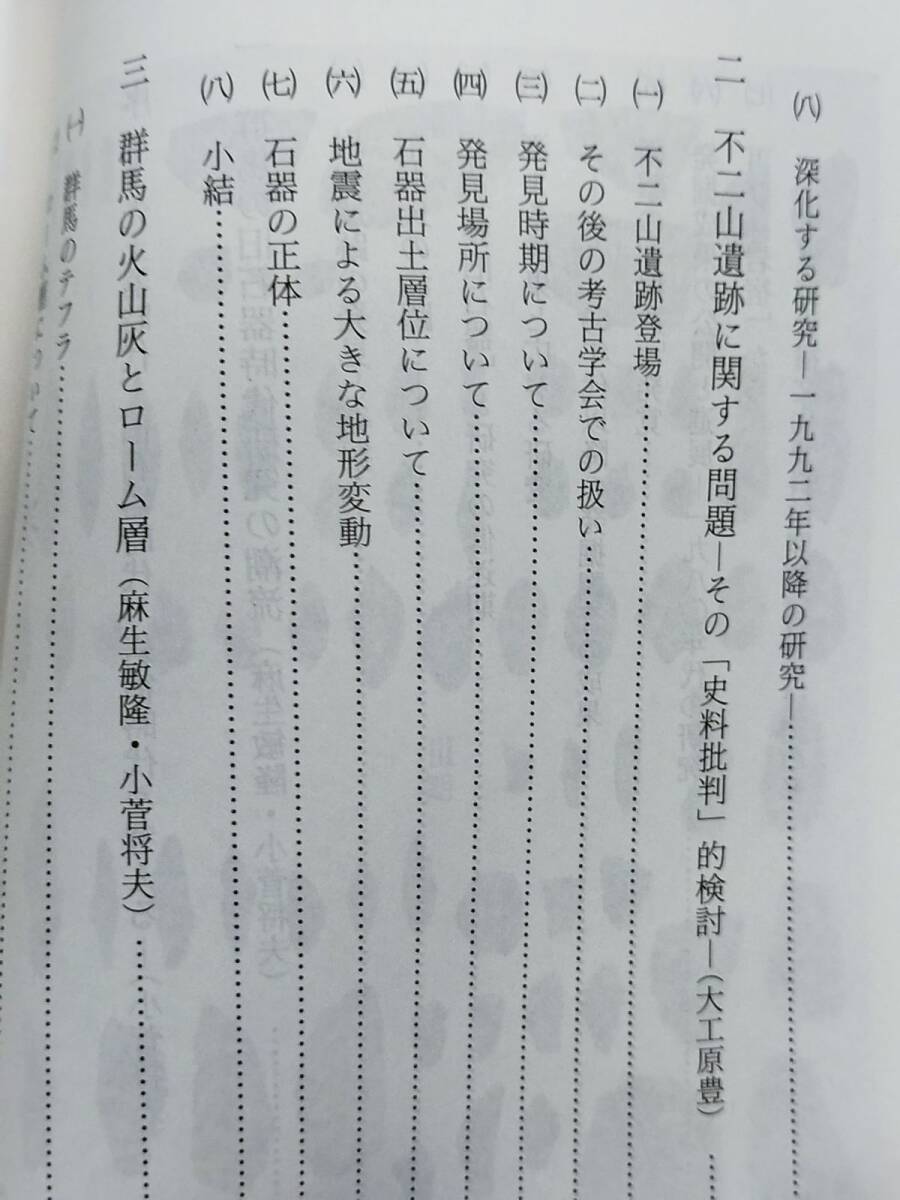 ㈧ 深化する研究―一九九二年以降の研究―……
二 不二山遺跡に関する問題―その「史料批判」的検討―（大工原豊）……
㈠ 不二山遺跡登場……
㈡ その後の考古学会での扱い……
㈢ 発見時期について……
㈣ 発見場所について……
㈤ 石器出土層位について……
㈥ 地震による大きな地形変動……
㈦ 石器の正体……
㈧ 小結……
三 群馬の火山灰とローム層（麻生敏隆・小菅将夫）……
㈠ 群馬のテフラ……